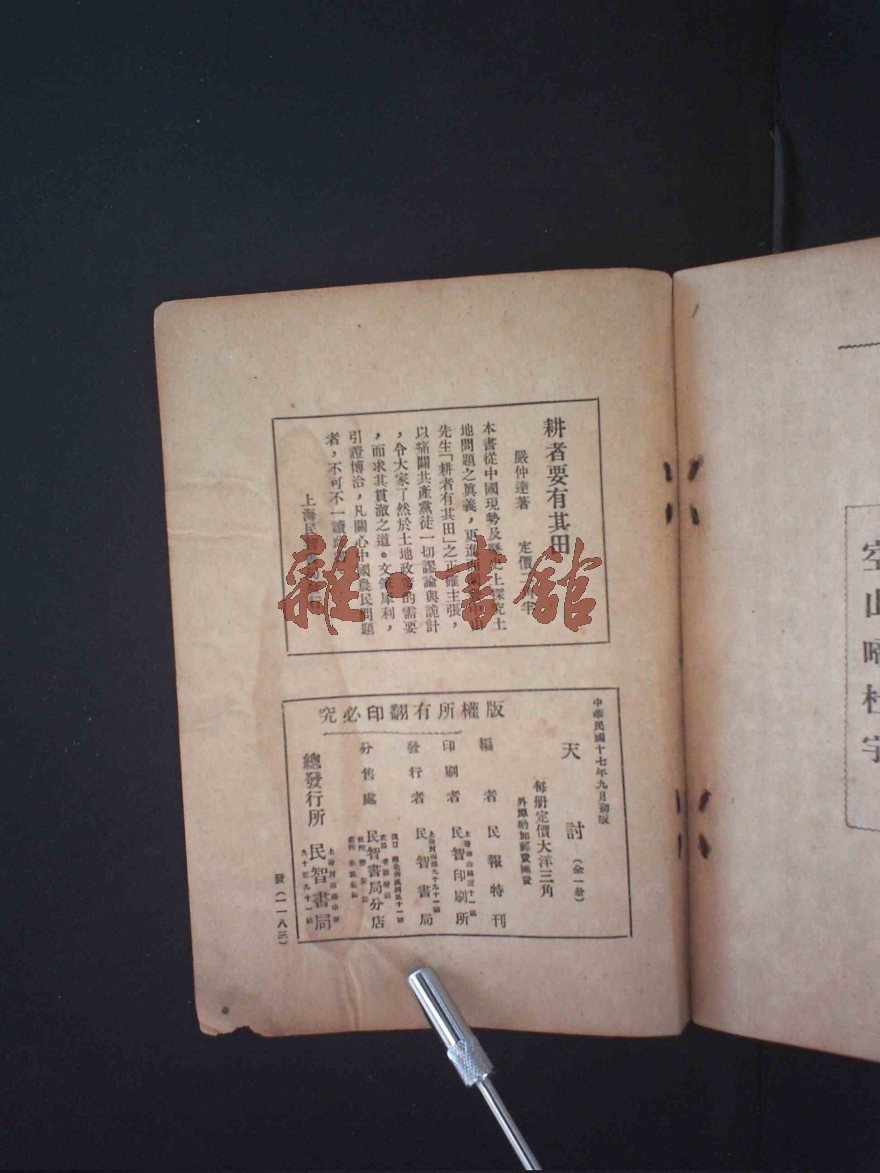 耕者要有其田
嚴仲達著 定價
本書從中國現勢及歷史上探究土
地問題之眞義，更進
先生「耕者有其田」之正確主張，
以痛闢共產黨徒一切謬論與詭計
，令大家了然於土地政的需要
，而求其貫澈之道。文筆犀利，
引證博洽，凡關心中國農民問題
者，不可不一讀
上海民智
雜·書館
中華民國十七年九月初版
天討（全一册）
每册定價大洋三角
外埠酌加郵費匯費
編者 民報特刊
印刷者 民智印刷所
發行者 民智書局
分售處 民智書局分店
總發行所 民智書局
版權所有翻印必究
發（一一八三）
空山啼杜宇